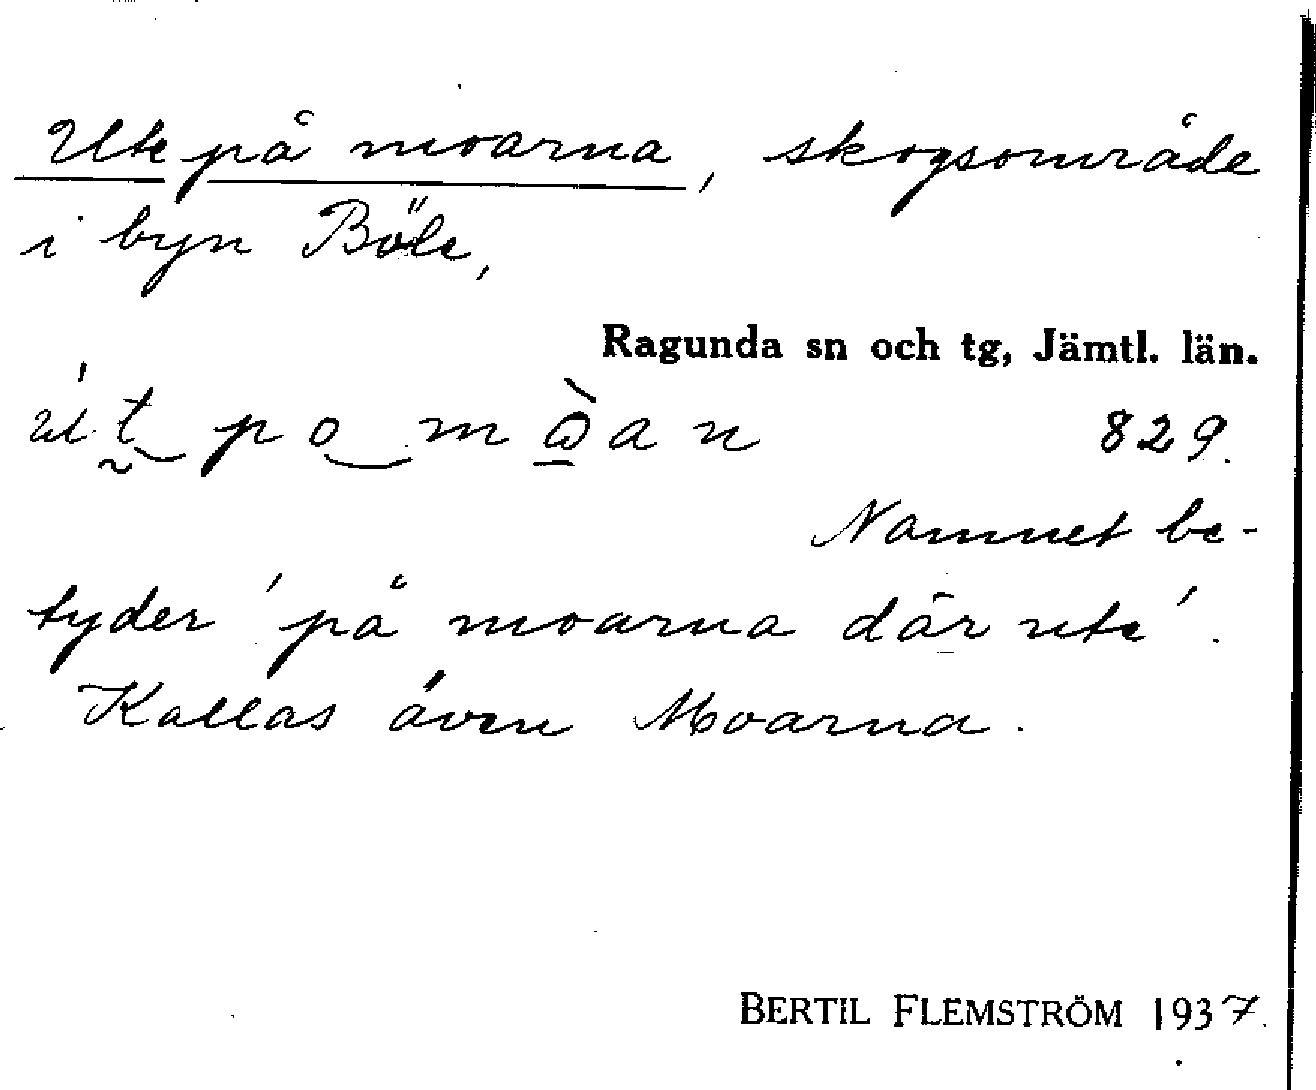 Ute på moarna, skogsområde
i byn Böle,
Ragunda sn och tg, Jämtl. län.
829.
Namnet be-
tyder 'på moarna där ute'.
Kallas även Moarna.
BERTIL FLEMSTRÖM 1937.